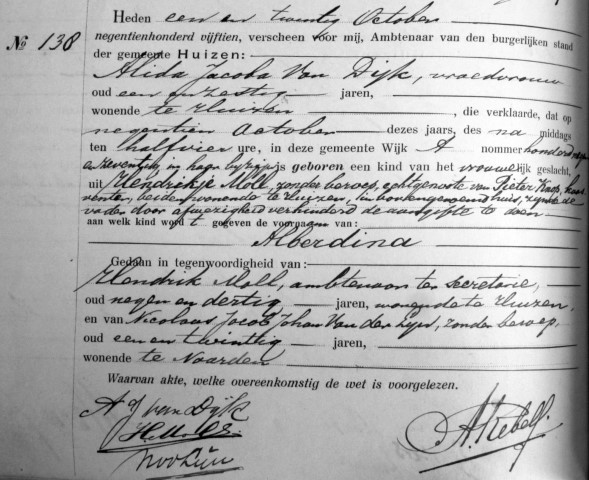 Heden een en twintig October
negentienhonderd vijftien, verscheen voor mij, Ambtenaar van den burgerlijken stand
No 138 der gemeente Huizen:
Alida Jacoba Van Dijk, vroedvrouw
oud een en zestig jaren,
wonende te Huizen, die verklaarde, dat op
negentien October dezes jaars, des na middags
ten half vier ure, in deze gemeente Wijk A nommer honderd
en zeventig, in haar bijzijn is geboren een kind van het vrouwelijk geslacht,
uit Hendrikje Moll, zonder beroep, echtgenoote van Pieter
beiden wonende te Huizen, ten bovengenoemd huis, zijnde de
vader door afwezigheid verhinderd de aangifte te doen
aan welk kind wordt gegeven de voornaam van:
Alberdina
Gedaan in tegenwoordigheid van:
Hendrik Moll, ambtenaar ter secretarie,
oud negen en dertig jaren, wonende te Huizen,
en van Nicolaas Jacob Johan Van der Lijn, zonder beroep,
oud een en twintig jaren,
wonende te Naarden
Waarvan akte, welke overeenkomstig de wet is voorgelezen.
A J van Dijk